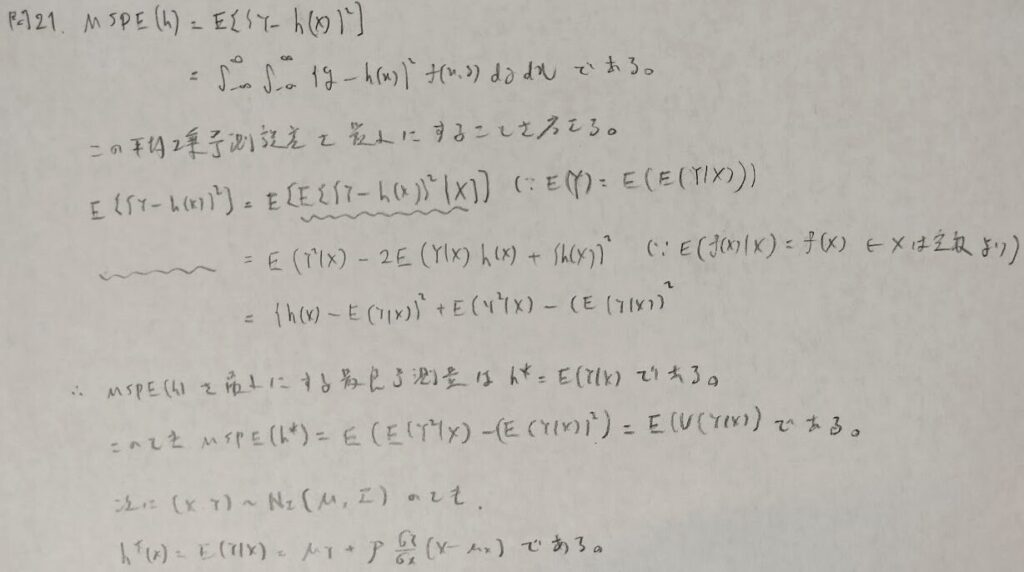 P.121. MSPE(h) = E[{Y - h(X)}²]
= ∫_{-∞}^{∞} ∫_{-∞}^{∞} {y - h(x)}² f(x,y) dy dx である。
この平均2乗予測誤差を最小にすることを考える。
E[{Y - h(X)}²] = E[E[{Y - h(X)}²|X]] (∵ E(Y) = E(E(Y|X)))
= E(Y²|X) - 2E(Y|X) h(X) + {h(X)}² (∵ E(f(X)|X) = f(X) ← Xは定数より)
= {h(X) - E(Y|X)}² + E(Y²|X) - (E(Y|X))²
∴ MSPE(h)を最小にする最良予測量は h* = E(Y|X) である。
このとき MSPE(h*) = E(E(Y²|X) - (E(Y|X))²) = E(V(Y|X)) である。
次に (X Y) ~ N₂(μ, Σ) のとき、
h*(X) = E(Y|X) = μY + ρ σY/σX (X - μX) である。